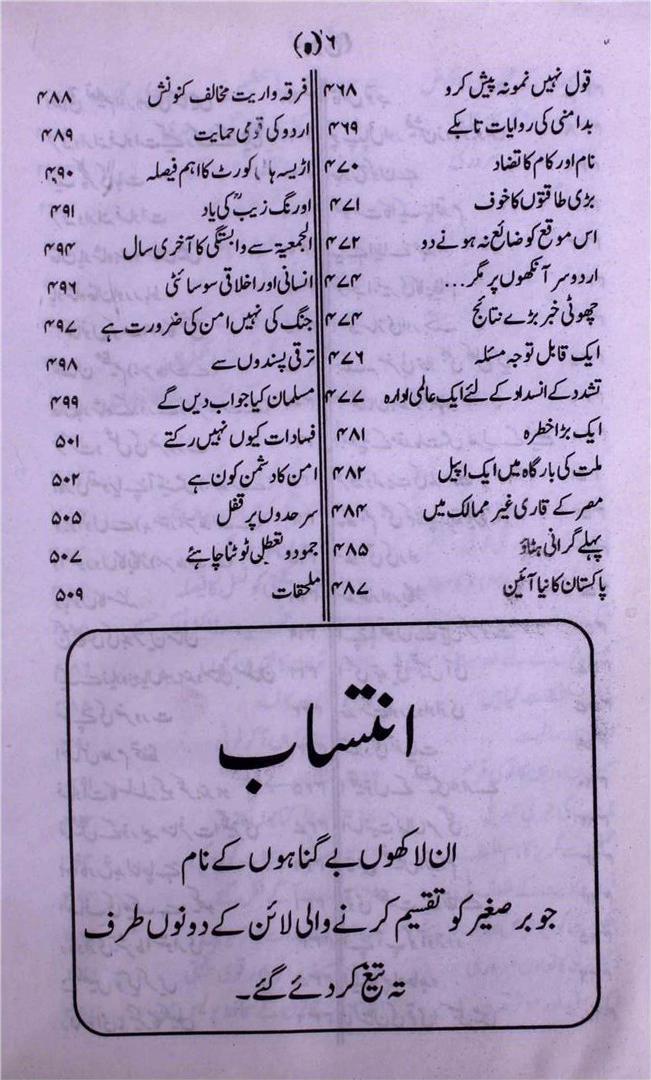 ۶ (۵)
قول نہیں نمونہ پیش کرو ۴۶۸
بدامنی کی روایات تابکے ۴۶۹
نام اور کام کا تضاد ۴۷۰
بڑی طاقتوں کا خوف ۴۷۱
اس موقع کو ضائع نہ ہونے دو ۴۷۲
اردو سر آنکھوں پر مگر... ۴۷۴
چھوٹی خبر بڑے نتائج ۴۷۴
ایک قابل توجہ مسئلہ ۴۷۶
تشدد کے انسداد کے لئے ایک عالمی ادارہ ۴۷۷
ایک بڑا خطرہ ۴۸۱
ملت کی بارگاہ میں ایک اپیل ۴۸۲
مصر کے قاری غیر ممالک میں ۴۸۴
پہلے گرانی ہٹاؤ ۴۸۵
پاکستان کا نیا آئین ۴۸۷
فرقہ واریت مخالف کنونشن ۴۸۸
اردو کی قومی حمایت ۴۸۹
اڑیسہ ہائی کورٹ کا اہم فیصلہ ۴۹۰
اورنگ زیبؒ کی یاد ۴۹۱
الجمعیۃ سے وابستگی کا آخری سال ۴۹۴
انسانی اور اخلاقی سوسائٹی ۴۹۶
جنگ کی نہیں امن کی ضرورت ہے ۴۹۷
ترقی پسندوں سے ۴۹۸
مسلمان کیا جواب دیں گے ۴۹۹
فسادات کیوں نہیں رکتے ۵۰۱
امن کا دشمن کون ہے ۵۰۲
سرحدوں پر قفل ۵۰۵
جمود و تعطل ٹوٹنا چاہئے ۵۰۷
ملحقات ۵۰۹
انتساب
ان لاکھوں بے گناہوں کے نام
جو برصغیر کو تقسیم کرنے والی لائن کے دونوں طرف
تہ تیغ کر دئے گئے۔